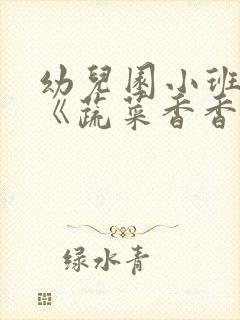 幼兒園小班
《蔬菜香香
绿水青